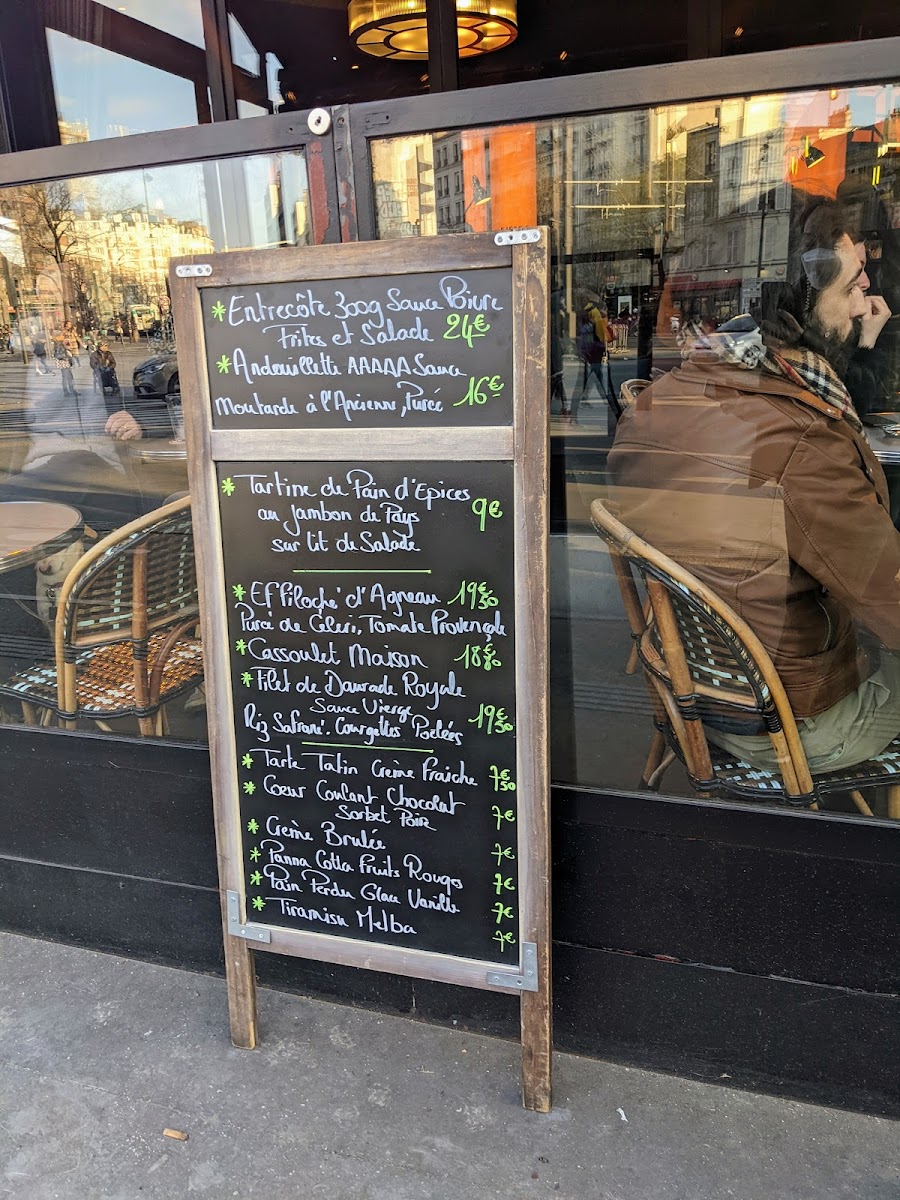 * Entrecôte 300g Sauce Poivre
Frites et Salade 24€
* Andouillette AAAAA Sauce
Moutarde à l'Ancienne, Purée 16€
* Tartine de Pain d'Epices
au Jambon de Pays 9€
sur lit de Salade
* Effiloché d'Agneau 19€50
Purée de Céleri, Tomate Provençale
* Cassoulet Maison 18€80
* Filet de Daurade Royale
Sauce Vierge
Riz Safrané. Courgettes Poêlées 19€50
* Tarte Tatin Crème Fraiche 7€50
* Coeur Coulant Chocolat
Sorbet Poire 7€
* Crème Brulée 7€
* Panna Cotta Fruits Rouges 7€
* Pain Perdu Glace Vanille 7€
* Tiramisu Melba 7€